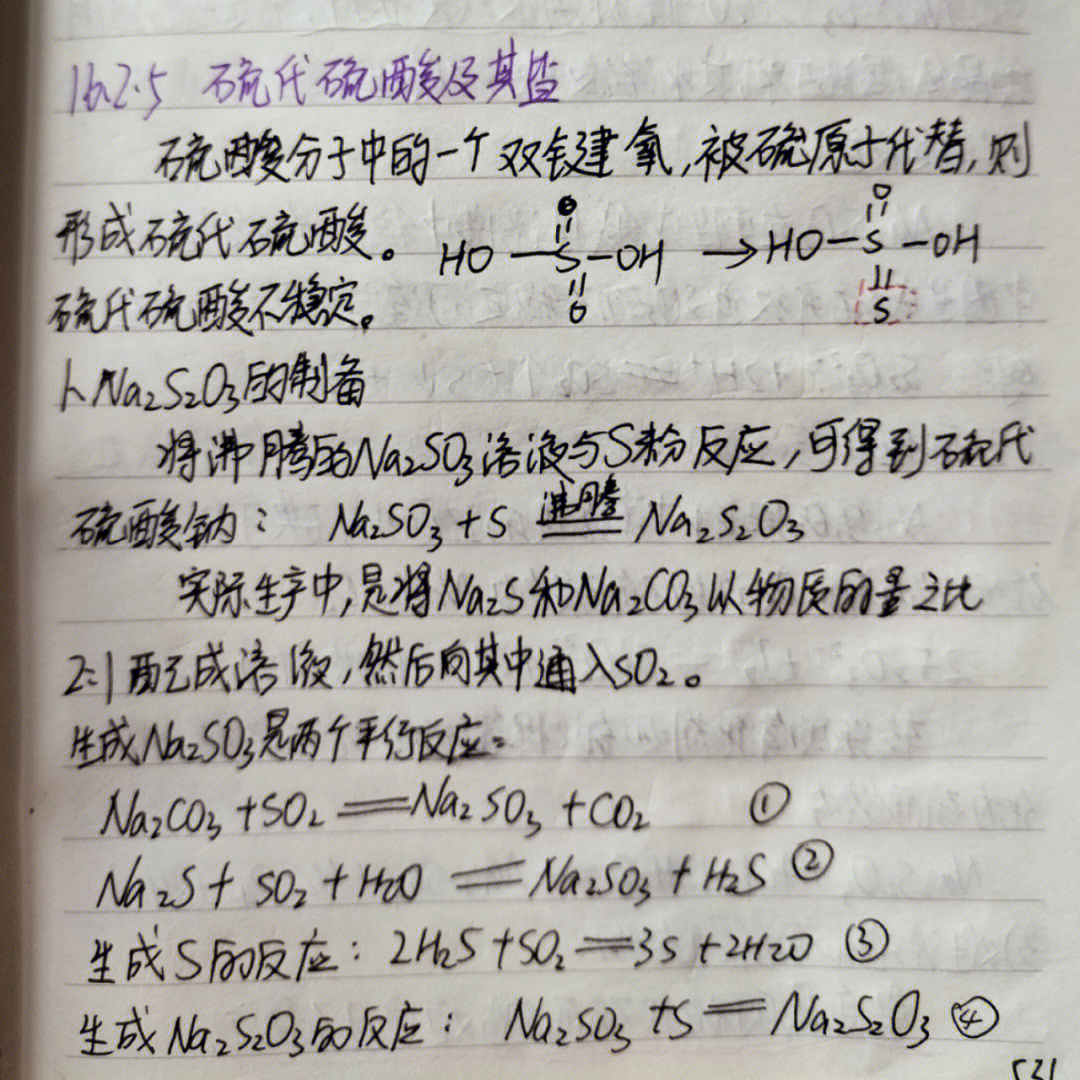 16.2.5 硫代硫酸及其盐
硫酸分子中的一个双键氧,被硫原子代替,则
形成硫代硫酸。 HO—S(=O)(=O)—OH → HO—S(=O)(=S)—OH
硫代硫酸不稳定。
1、Na₂S₂O₃的制备
将沸腾的Na₂SO₃溶液与S粉反应,可得到硫代
硫酸钠: Na₂SO₃+S 沸腾══ Na₂S₂O₃
实际生产中,是将Na₂S和Na₂CO₃以物质的量之比
2:1配成溶液,然后向其中通入SO₂。
生成Na₂SO₃是两个平行反应:
Na₂CO₃+SO₂══Na₂SO₃+CO₂ ①
Na₂S+SO₂+H₂O══Na₂SO₃+H₂S ②
生成S的反应:2H₂S+SO₂══3S+2H₂O ③
生成Na₂S₂O₃的反应: Na₂SO₃+S══Na₂S₂O₃ ④
531